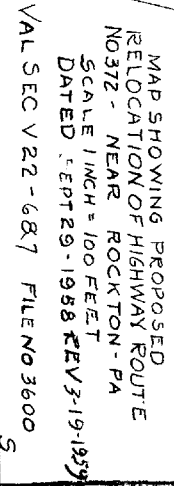 MAP SHOWING PROPOSED
RELOCATION OF HIGHWAY ROUTE
NO 372 - NEAR ROCKTON - PA
SCALE 1 INCH = 100 FEET
DATED SEPT 29 - 1958 REV 3-19-1959
VAL SEC V22 - 6&7 FILE NO 3600
S